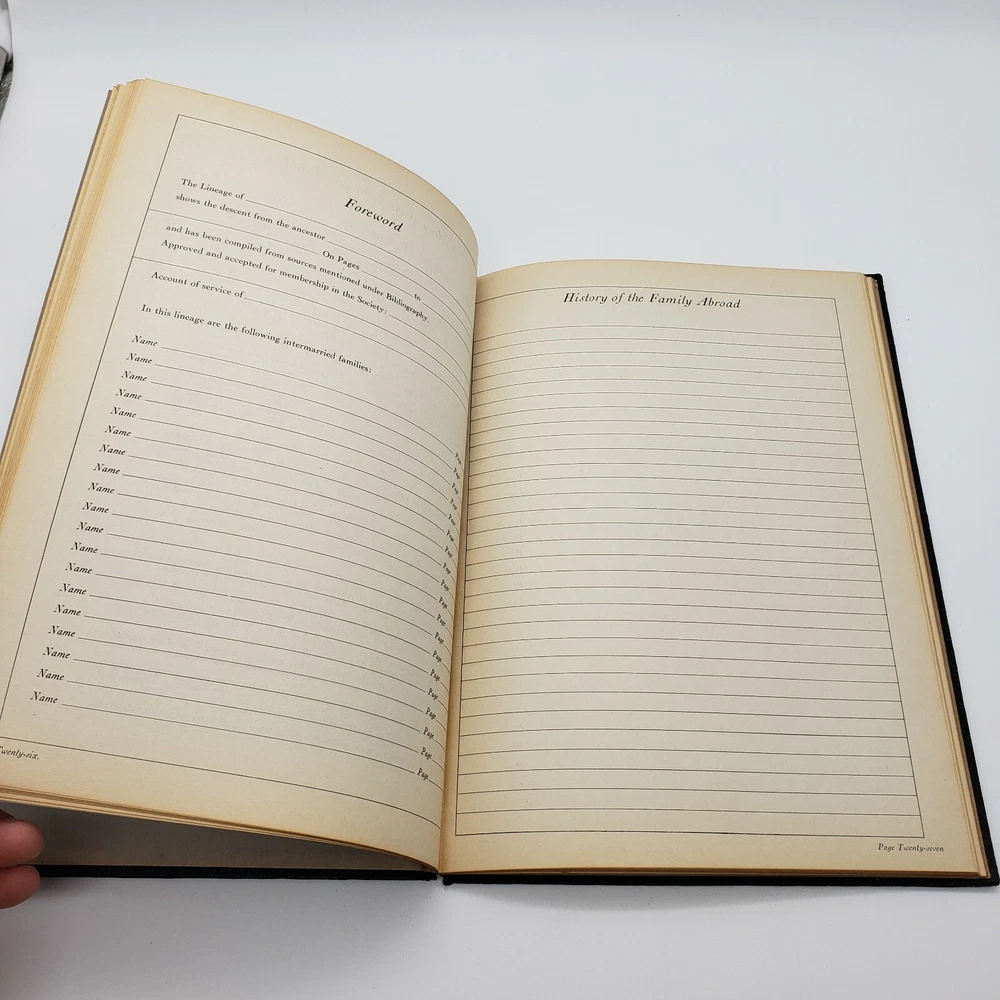 Foreword
The Lineage of
shows the descent from the ancestor
On Pages to
and has been compiled from sources mentioned under Bibliography.
Approved and accepted for membership in the Society:
Account of service of
In this lineage are the following intermarried families:
Name Page
Name Page
Name Page
Name Page
Name Page
Name Page
Name Page
Name Page
Name Page
Name Page
Name Page
Name Page
Name Page
Name Page
Name Page
Name Page
Name Page
Name Page
Name Page
Twenty-six.
History of the Family Abroad
Page Twenty-seven